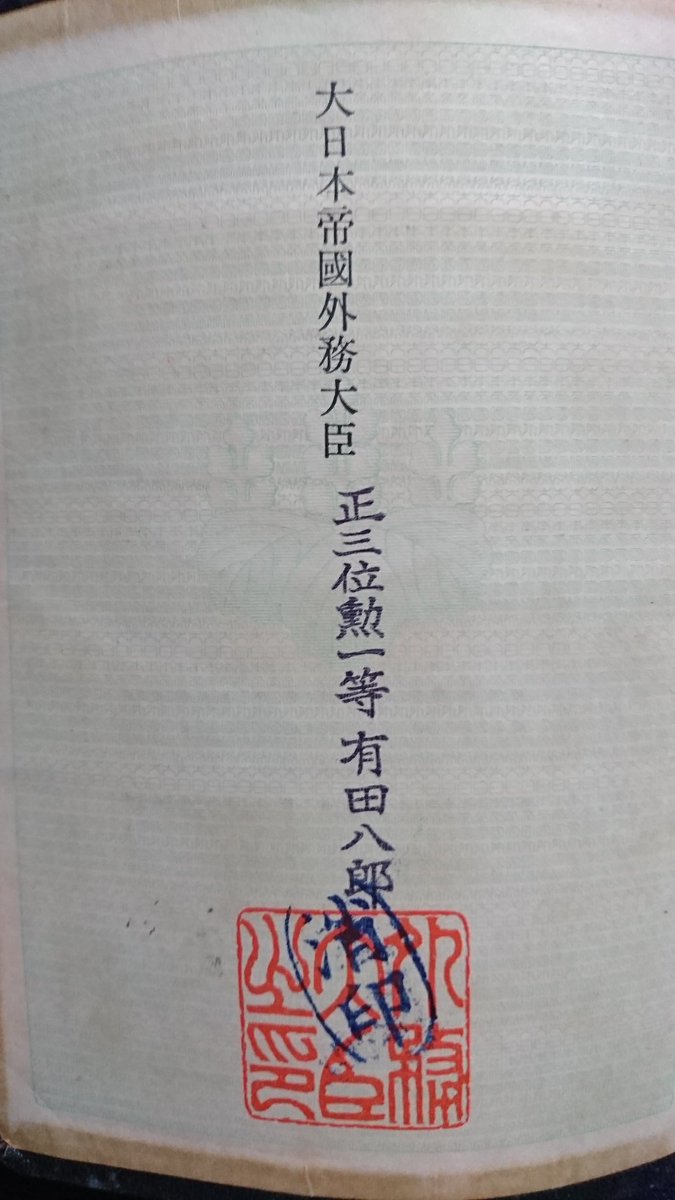 大日本帝國外務大臣 正三位勲一等 有田八郎
外務大臣之印
消印